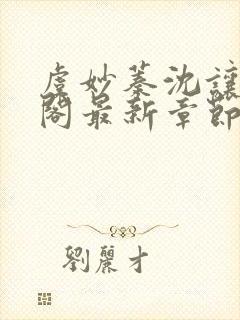 虞妙蓁沈讓
閣最新章節
劉麗才